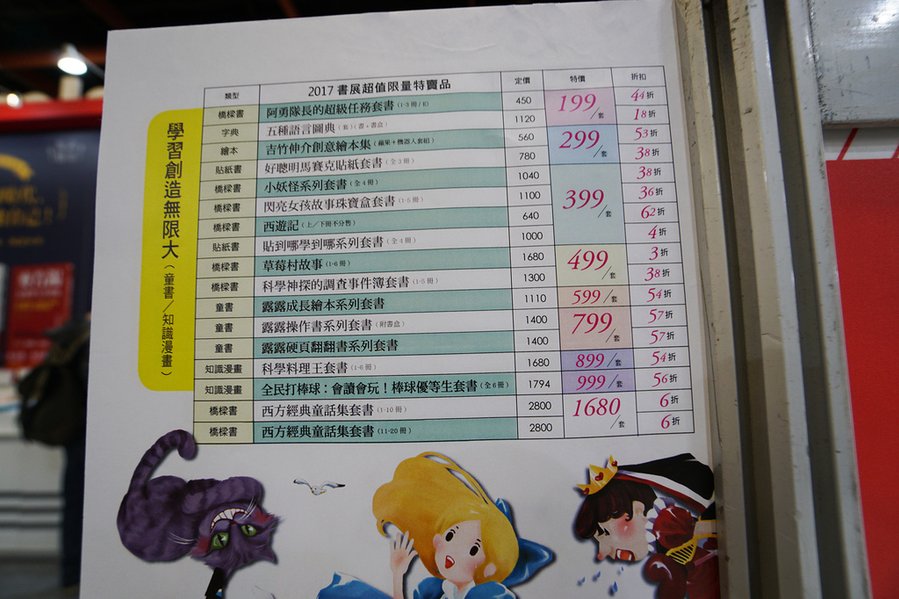 學習創造無限大（童書／知識漫畫）
類型 2017 書展超值限量特賣品 定價 特價 折扣
橋樑書 阿勇隊長的超級任務套書 450 199/套 44折
字典 五種語言圖典（套）（書+書盒） 1120 18折
繪本 吉竹伸介創意繪本集（蘋果+機器人套組） 560 299/套 53折
貼紙書 好聰明馬賽克貼紙套書（全3冊） 780 38折
橋樑書 小妖怪系列套書（全4冊） 1040 399/套 38折
橋樑書 閃亮女孩故事珠寶盒套書（1-5冊） 1100 36折
橋樑書 西遊記（上／下冊不分售） 640 62折
貼紙書 貼到哪學到哪系列套書（全4冊） 1000 4折
橋樑書 草莓村故事（1-6冊） 1680 499/套 3折
橋樑書 科學神探的調查事件簿套書（1-5冊） 1300 38折
童書 露露成長繪本系列套書 1110 599/套 54折
童書 露露操作書系列套書（附書盒） 1400 799/套 57折
童書 露露硬頁翻翻書系列套書 1400 57折
知識漫畫 科學料理王套書（1-6冊） 1680 899/套 54折
知識漫畫 全民打棒球：會讀會玩！棒球優等生套書（全6冊） 1794 999/套 56折
橋樑書 西方經典童話集套書（1-10冊） 2800 1680/套 6折
橋樑書 西方經典童話集套書（11-20冊） 2800 6折